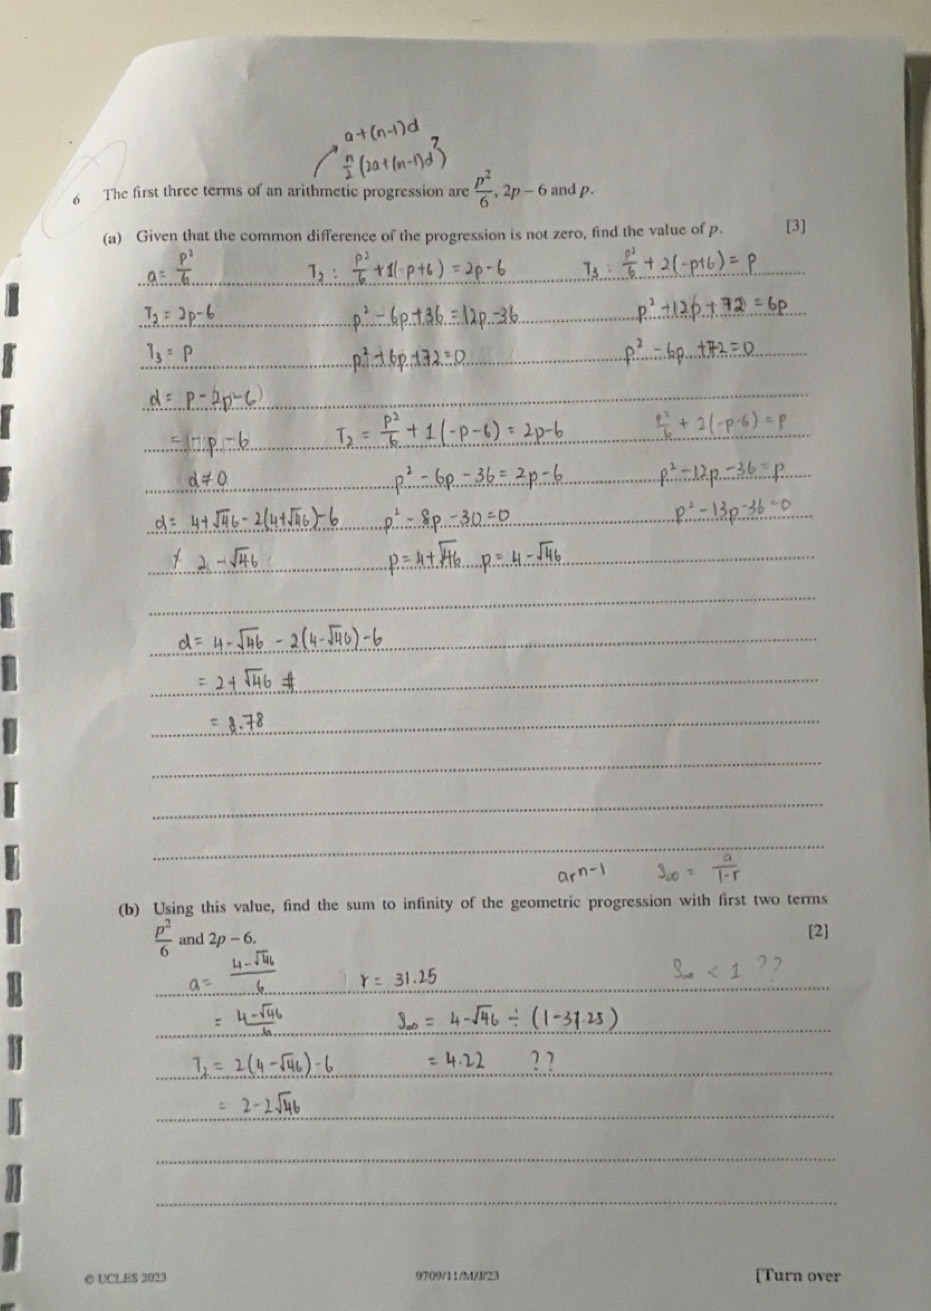 a+(n-1)d
n/2 (2a+(n-1)d)
6 The first three terms of an arithmetic progression are p²/6, 2p − 6 and p.
(a) Given that the common difference of the progression is not zero, find the value of p. [3]
a = p²/6 T₂ : p²/6 + 1(-p+6) = 2p-6 T₃ : p²/6 + 2(-p+6) = p
T₂ = 2p-6 p² - 6p + 36 = 12p - 36 p² + 12p + 72 = 6p
T₃ = p p² + 6p + 72 = 0 p² - 6p + 72 = 0
d = p - (2p-6)
= p - 6 T₂ = p²/6 + 1(-p-6) = 2p-6 p²/6 + 2(-p-6) = p
d ≠ 0 p² - 6p - 36 = 2p - 6 p² - 12p - 36 = p
d = 4+√46 - 2(4+√46) - 6 p² - 8p - 30 = 0 p² - 13p - 36 = 0
2 - √46 p = 4+√46 p = 4-√46
d = 4-√46 - 2(4-√46) - 6
= 2+√46
= 8.78
arⁿ⁻¹ S∞ = a/1-r
(b) Using this value, find the sum to infinity of the geometric progression with first two terms
p²/6 and 2p − 6. [2]
a = 4-√46/6 r = 31.25 S∞ < 1 ??
= 4-√46/6 S∞ = 4-√46 ÷ (1-31.25)
T₂ = 2(4-√46)-6 = 4.22 ??
= 2-2√46
© UCLES 2023 9709/11/M/J/23 [Turn over